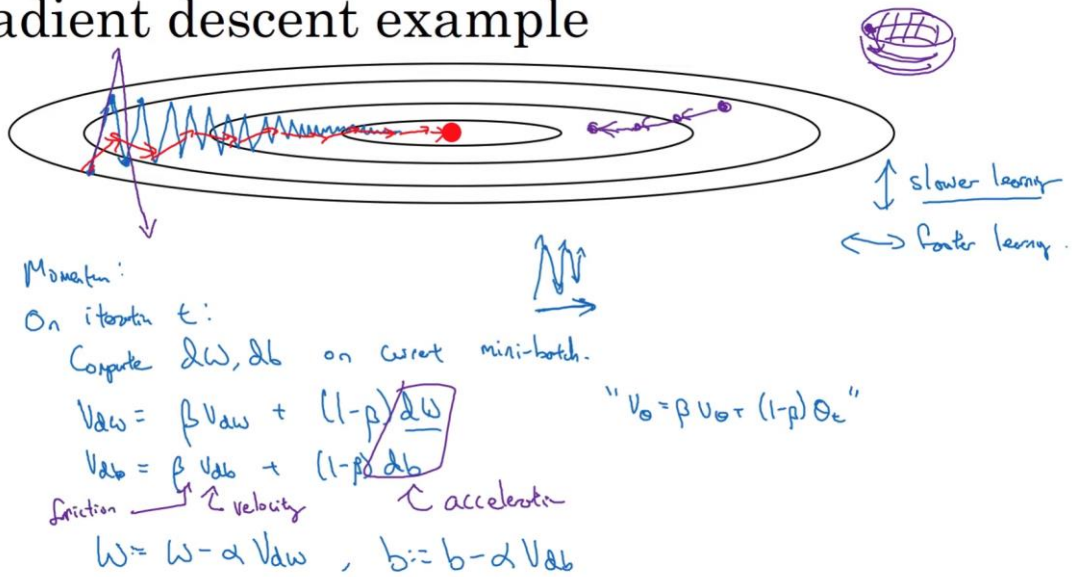 adient descent example
↕ slower learning
↔ faster learning.
Momentum:
On iteration t:
Compute dW, db on current mini-batch.
Vdw = β Vdw + (1-β) dW
"Vθ = β Vθ + (1-β) θt"
Vdb = β Vdb + (1-β) db
friction velocity acceleration
W := W - α Vdw , b := b - α Vdb